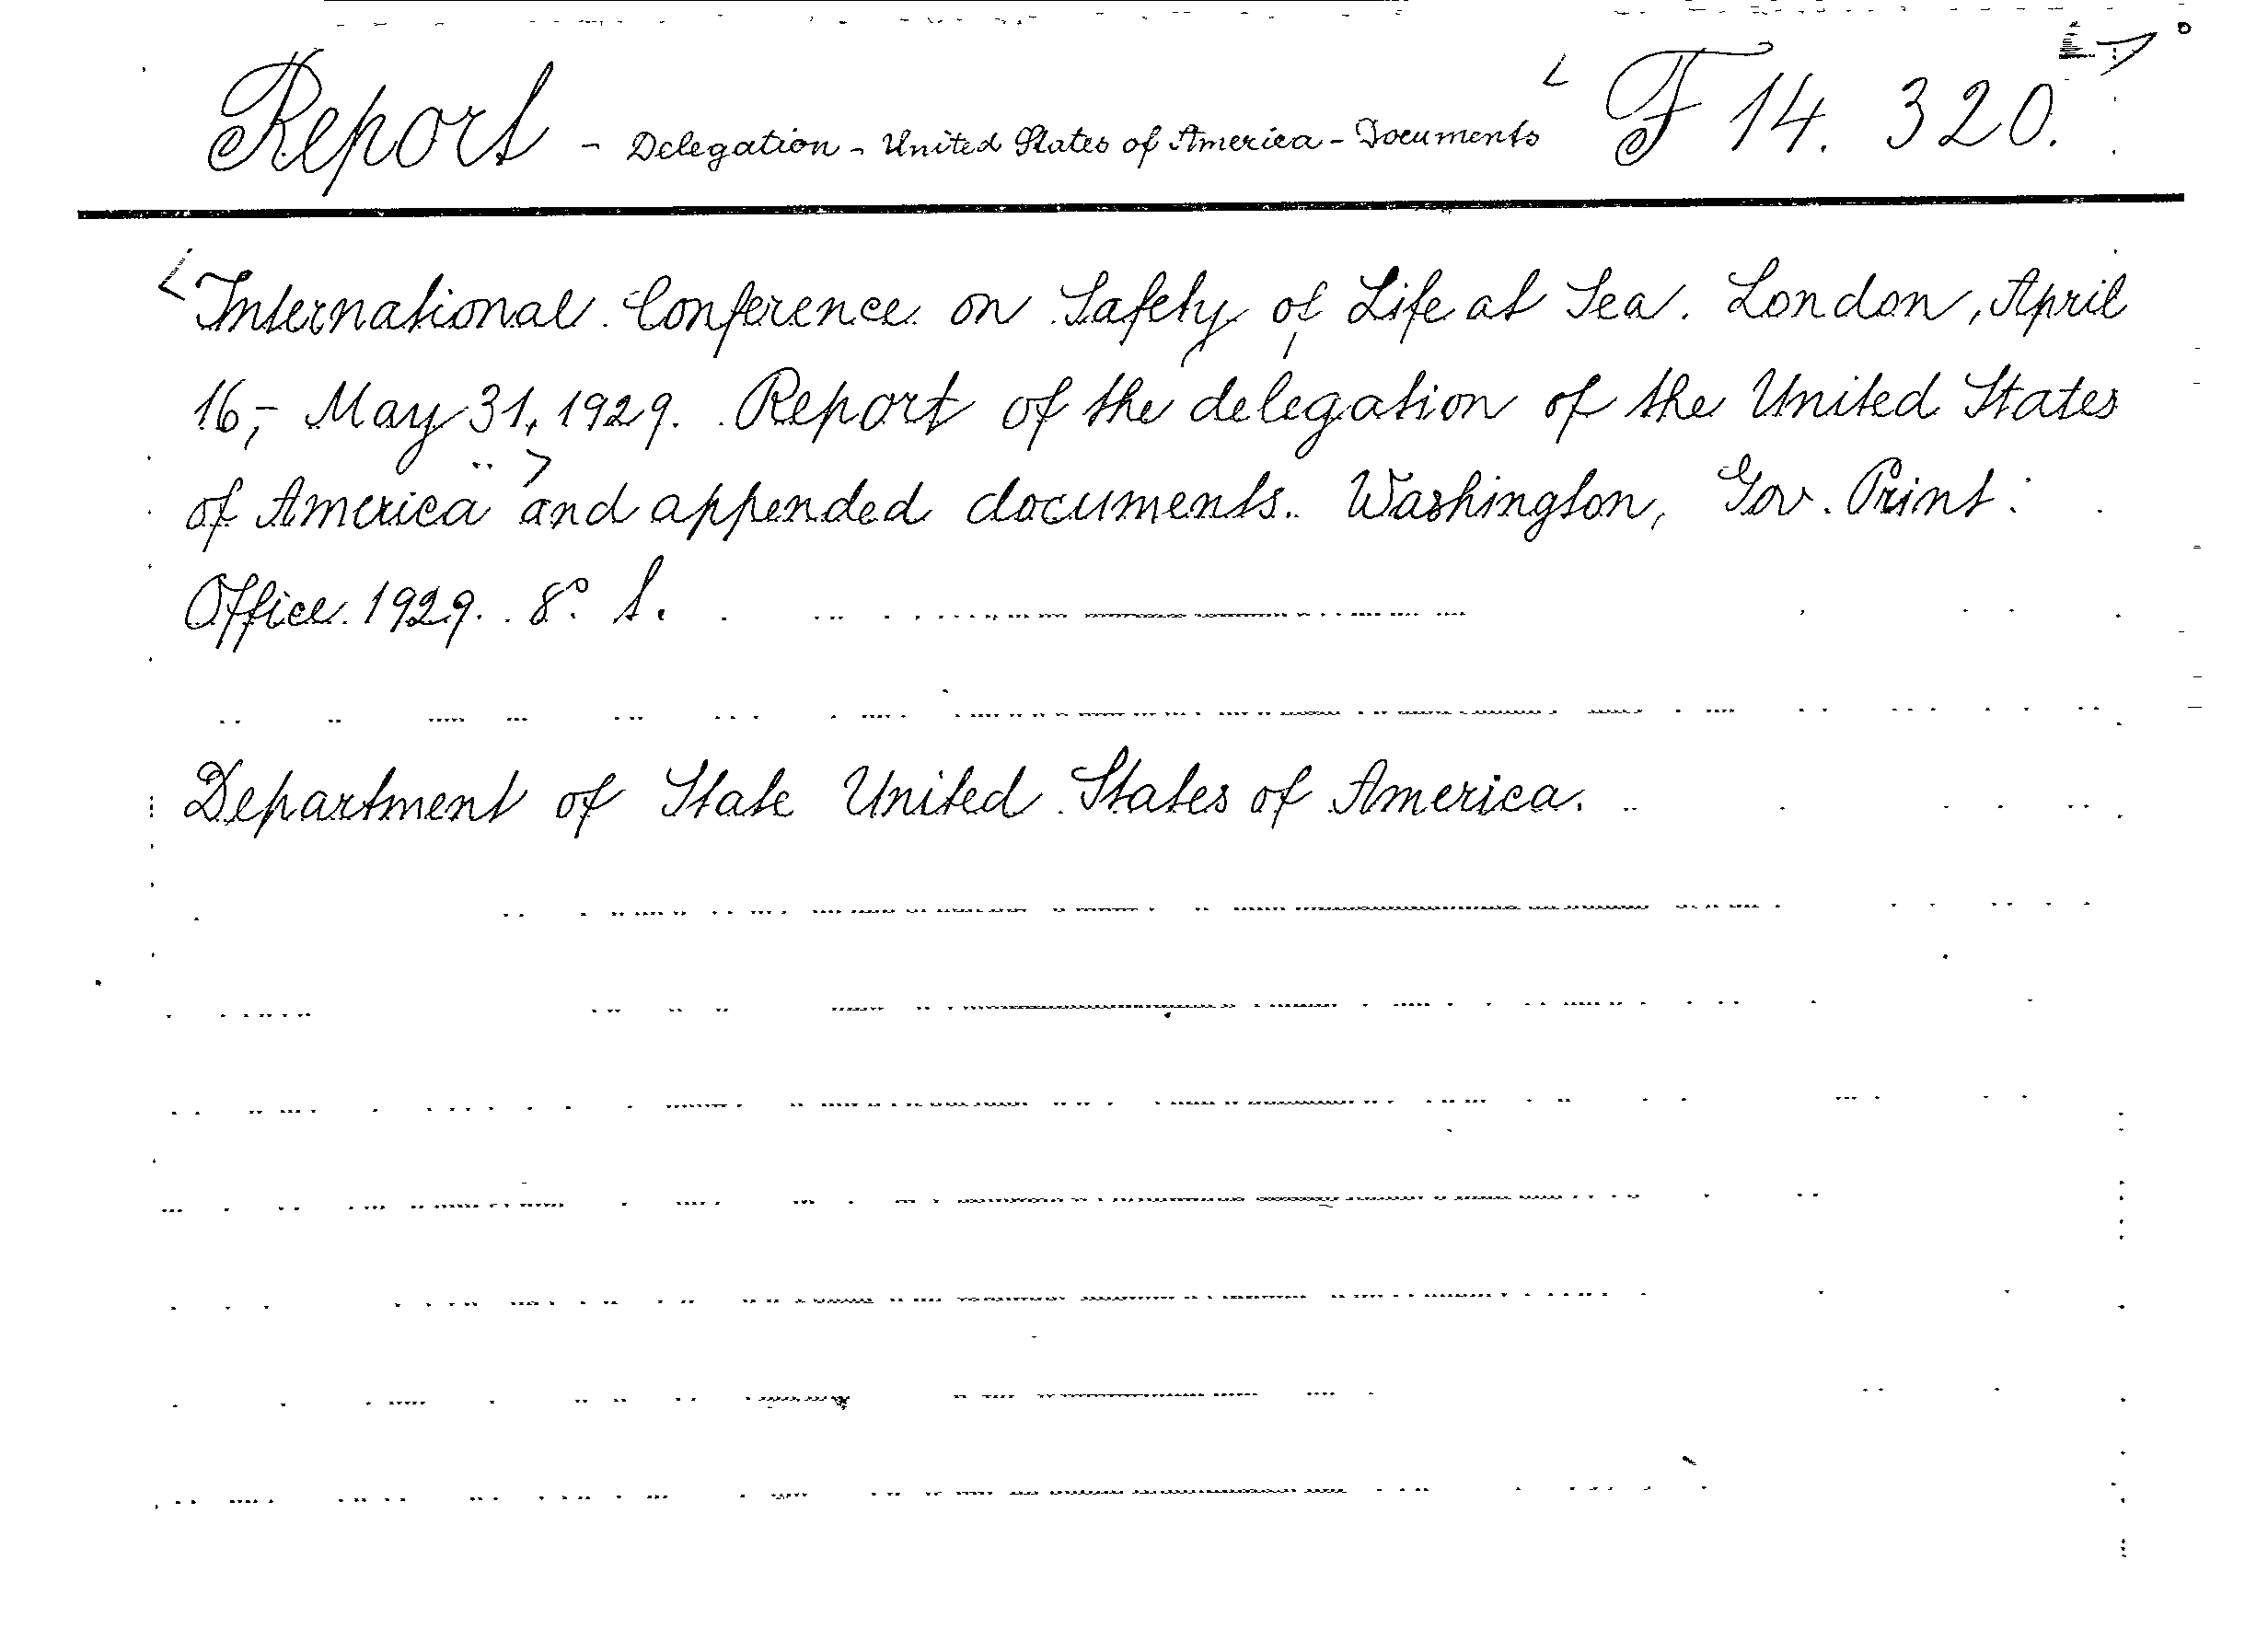 Report - Delegation - United States of America - Documents < F 14. 320.
< International Conference on Safety of Life at Sea. London, April
16,- May 31, 1929. Report of the delegation of the United States
of America > and appended documents. Washington, Gov. Print.
Office. 1929. 8° s.
Department of State United States of America.